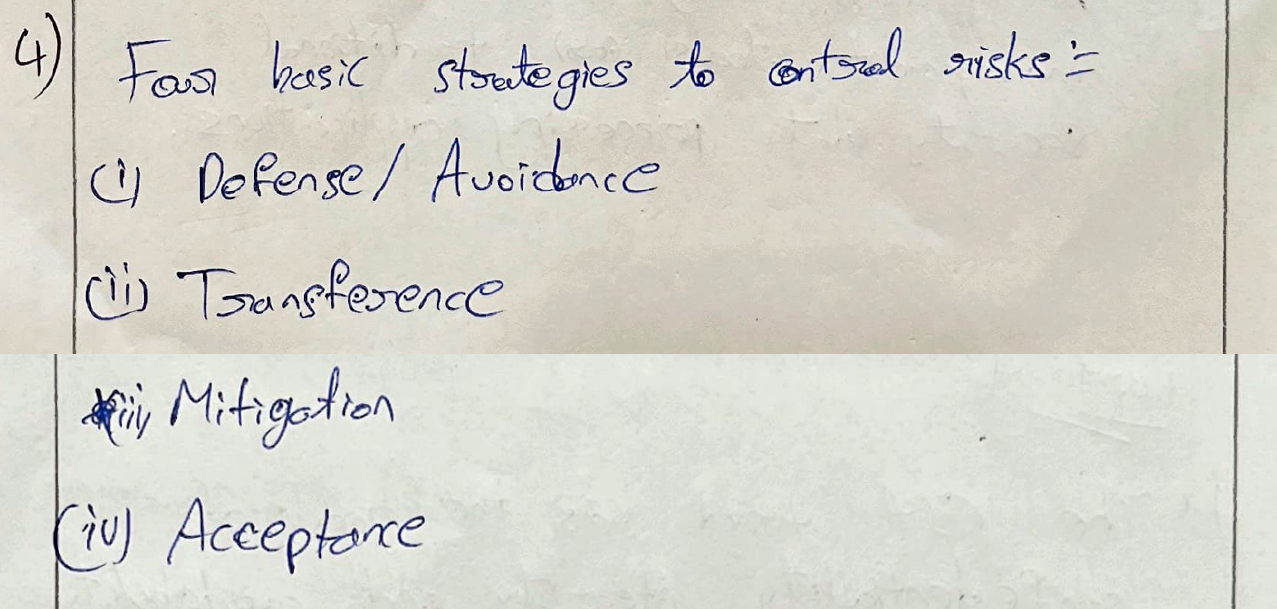 4) Four basic strategies to control risks :-
(i) Defense / Avoidance
(ii) Transference
(iii) Mitigation
(iv) Acceptance